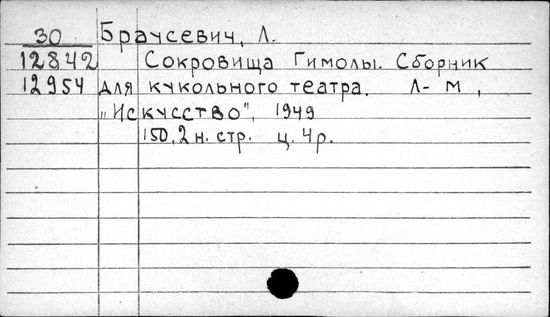 30 Браусевич, Л.
12842 Сокровища Гимолы. Сборник
12954 для кукольного театра. Л-М,
„Искусство", 1949
150,2 н. стр. ц. 4р.